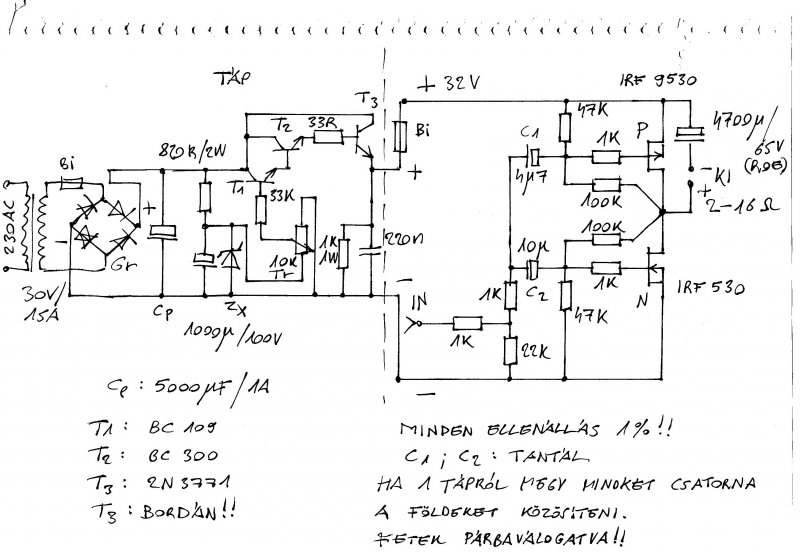 TÁP
+ 32V
IRF 9530
T3
T2
33R
Bi
47K
820R/2W
C1
1K
P
4700µ/
65V
(ROE)
Bi
T1
+
4µ7
-
KI
+
33K
100K
2-16Ω
230AC
+
100K
-
10K
1K
1W
220n
10µ
Gr
Tr
1K
30V/
15A
-
IN
1K
C2
N
IRF 530
Cp
ZX
47K
1000µ/100V
1K
22K
-
Cp : 5000µF/1A
T1 : BC 109
T2 : BC 300
T3 : 2N3771
T3 : BORDÁN!!
MINDEN ELLENÁLLÁS 1%!!
C1 ; C2 : TANTÁL
HA 1 TÁPRÓL MEGY MINDKÉT CSATORNA
A FÖLDEKET KÖZÖSITENI.
FETEK PÁRBAVÁLOGATVA!!